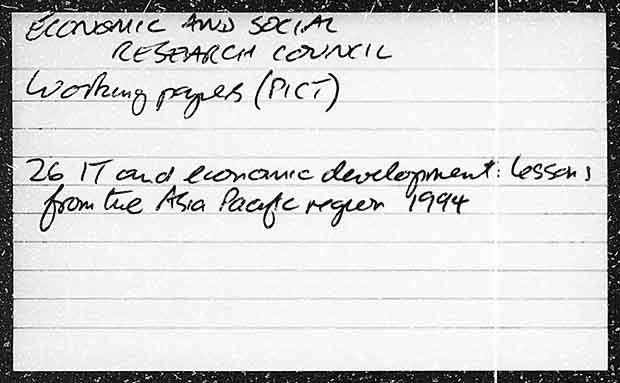 ECONOMIC AND SOCIAL
RESEARCH COUNCIL
Working papers (PICT)
26 IT and economic development: lessons
from the Asia Pacific region 1994